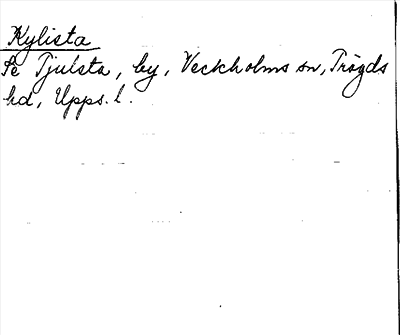 Kylista
Se Tjulsta, by, Veckholms sn, Trögds
hd, Upps. l.